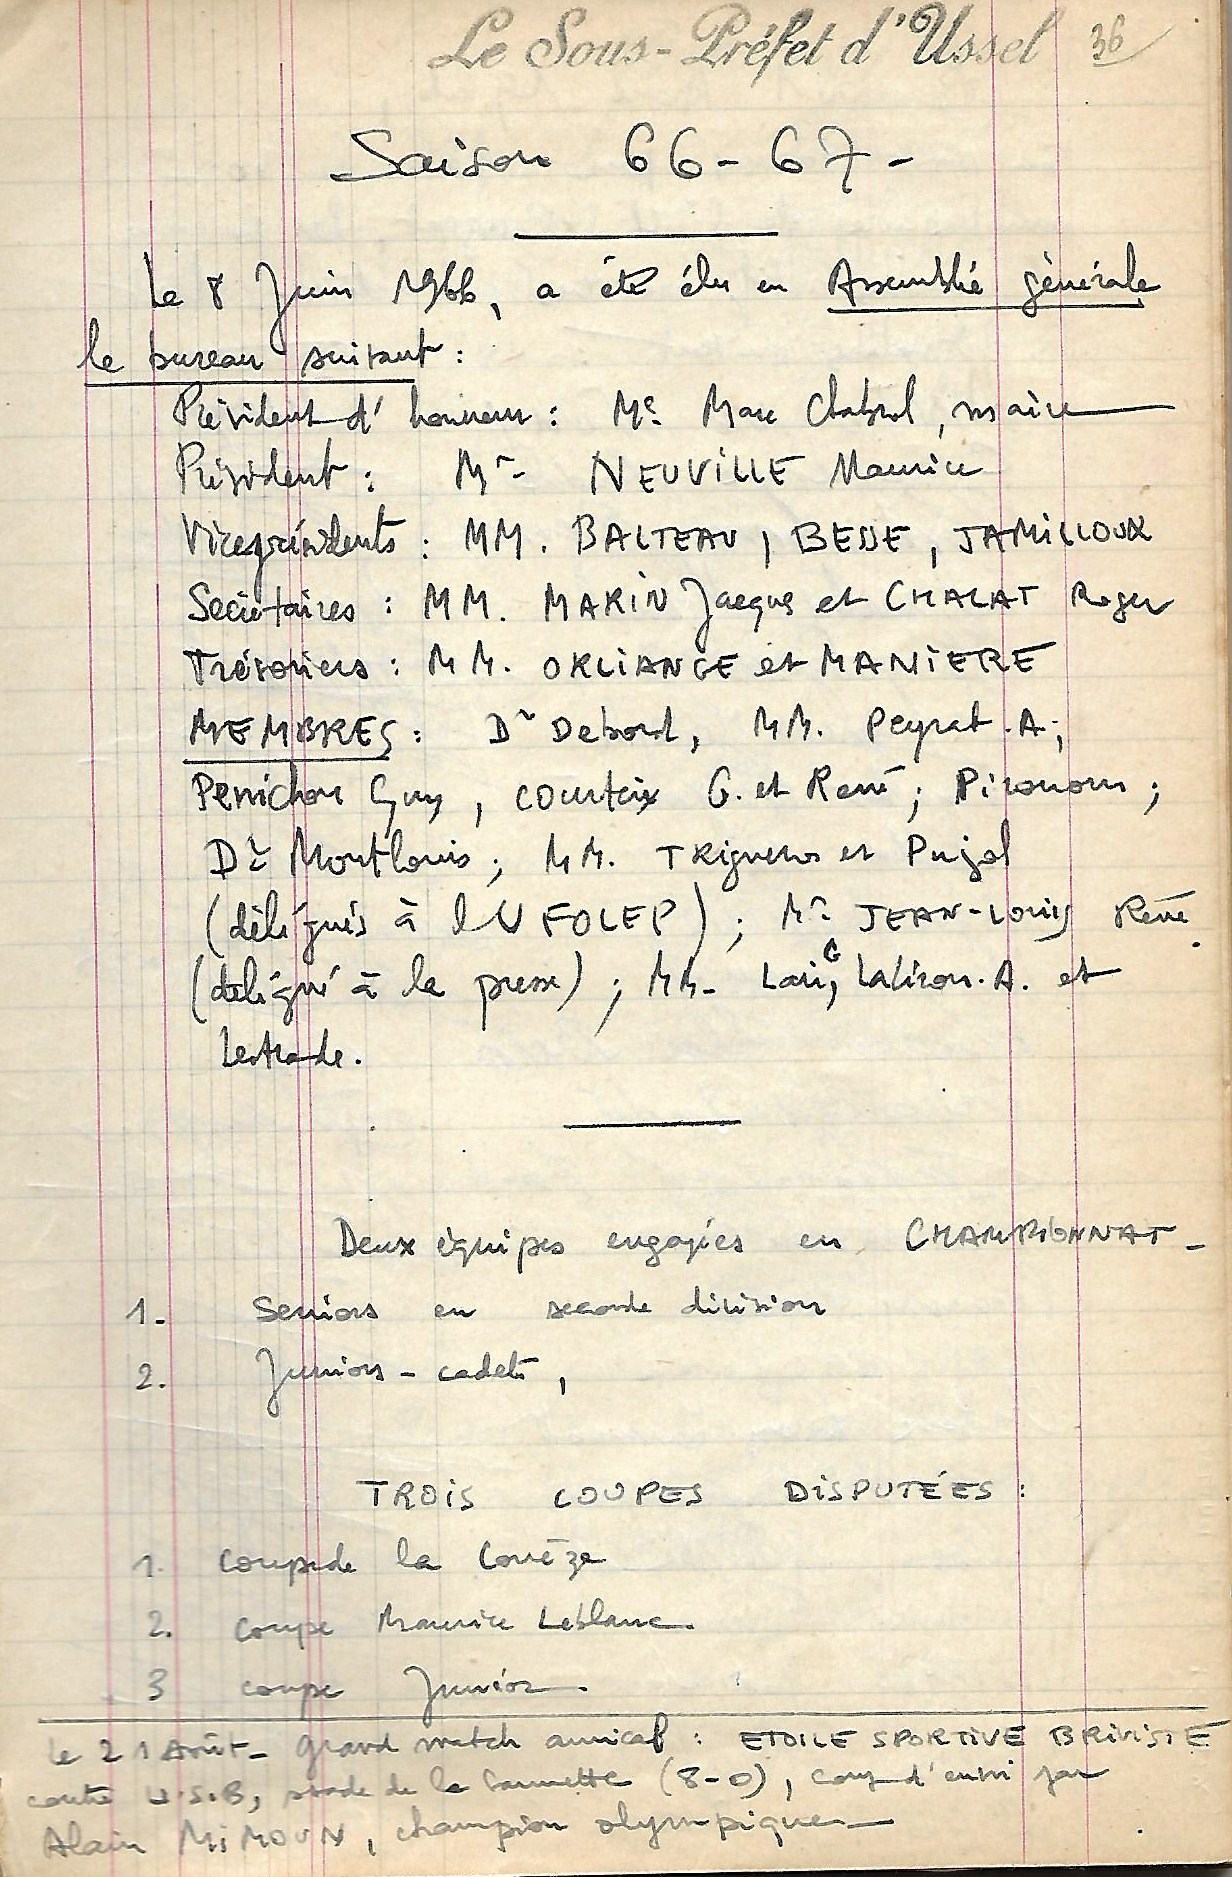 Le Sous-Préfet d'Ussel 36
Saison 66-67-
Le 8 Juin 1966, a été élu en Assemblée générale
le bureau suivant :
Président d'honneur : Me Marc Chabrol, maire
Président : Mr NEUVILLE Maurice
Vice présidents : MM. BALTEAU, BESSE, JAMILLOUX
Secrétaires : MM. MARIN Jacques et CHALAT Roger
Trésoriers : MM. ORLIANGE et MANIERE
MEMBRES : Dr Debord, MM. Peyrat .A ;
Penichon Guy, Courteix G. et René ; Pironom ;
Dr Montlouis ; MM. TRigueros et Pujol
(délégués à l'UFOLEP) ; Mr JEAN-Louis René
(délégué à la presse) ; MM. G, Laliron .A. et
Lestrade.
Deux équipes engagées en CHAMPIONNAT-
1. Seniors en seconde division
2. Juniors - cadets,
TROIS COUPES DISPUTÉES :
1. Coupe de la Corrèze
2. Coupe Maurice Leblanc.
3 coupe Junior.
Le 21 Août - Grand match amical : ETOILE SPORTIVE BRIVISTE
contre U.S.B, stade de la (8-0), coup d'envoi par
Alain MIMOUN, champion olympique